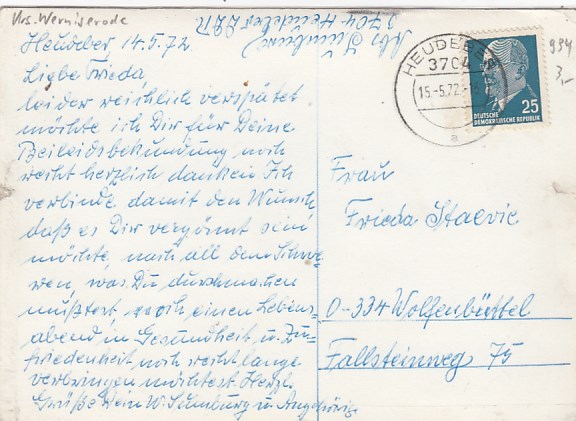 Krs. Wernigerode
3704 Heudeber DDR
Heudeber 14.5.72
Liebe Frieda,
leider reichlich verspätet
möchte ich Dir für Deine
Beileidsbekundung noch
recht herzlich danken Ich
verbinde damit den Wunsch,
daß es Dir vergönnt sein
möchte, nach all dem Schwe-
ren, was Du durchmachen
mußtest, noch einen Lebens-
abend in Gesundheit u. Zu-
friedenheit noch recht lange
verbringen möchtest. Herzl.
Grüße Dein W. u. Angehörige
HEUDEBER
3704
15.-5.72
a
25
DEUTSCHE
DEMOKRATISCHE REPUBLIK
934
3,-
Frau
Frieda Staevie
D-334 Wolfenbüttel
Fallsteinweg 75